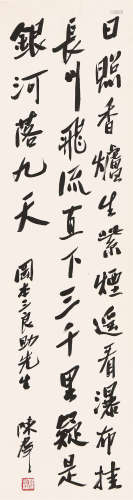 日照香爐生紫煙遥看瀑布挂
長川飛流直下三千里疑是
銀河落九天
岡本三良助先生
陳犀